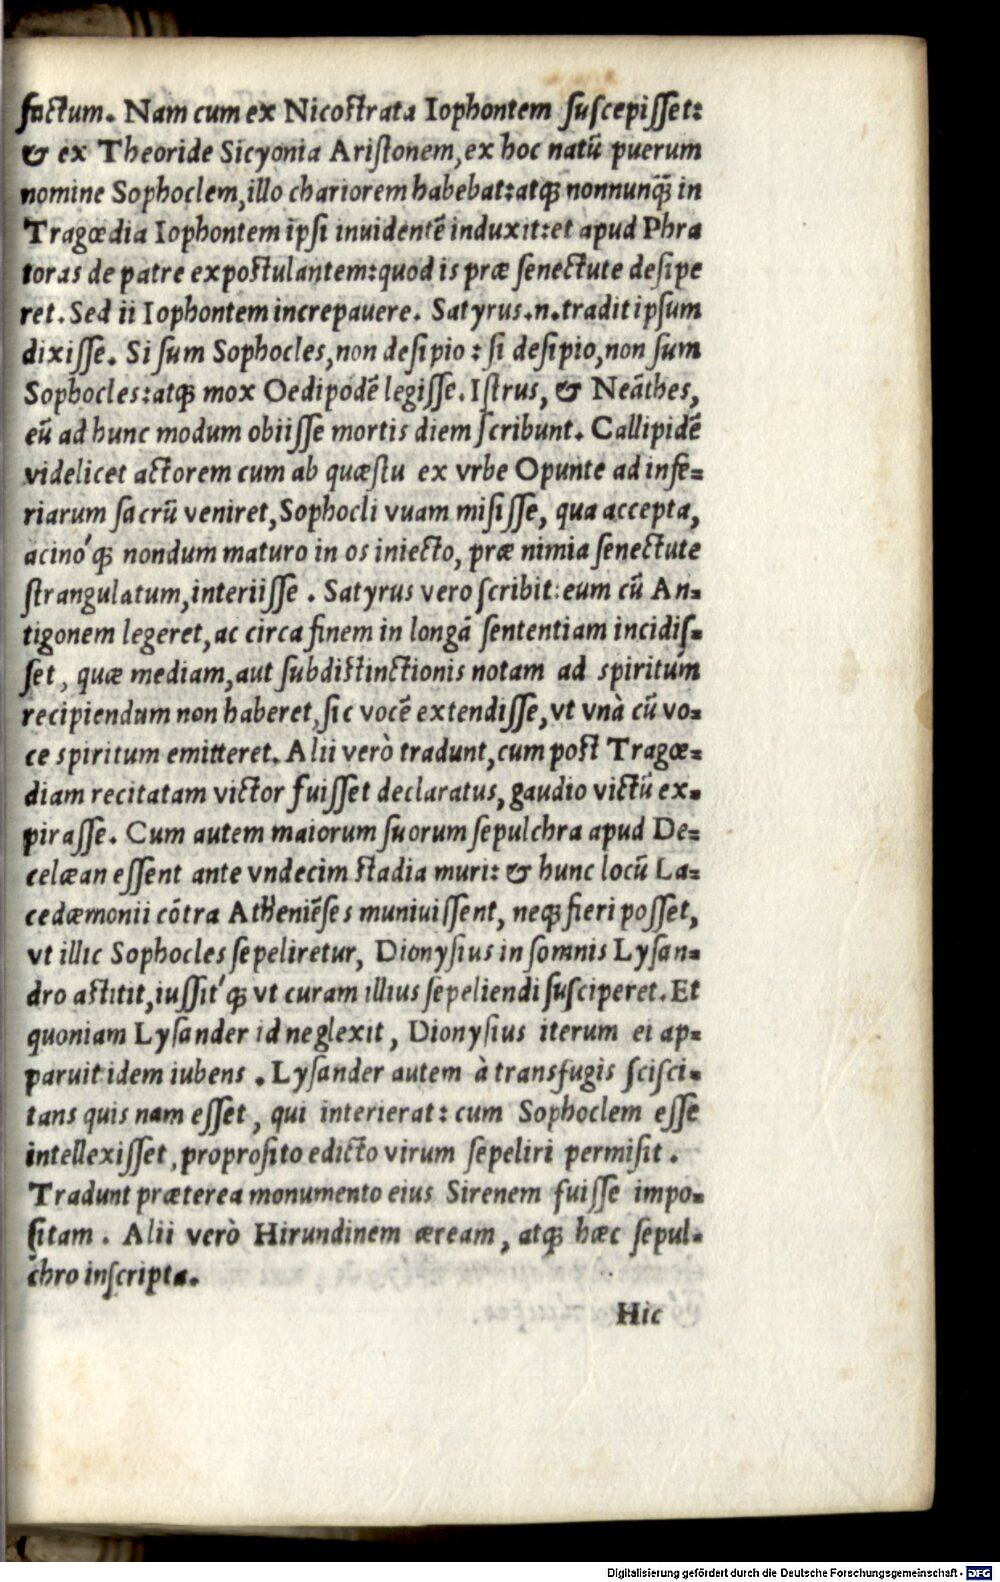 factum. Nam cum ex Nicostrata Iophontem suscepisset:
& ex Theoride Sicyonia Aristonem, ex hoc natũ puerum
nomine Sophoclem, illo chariorem habebat: atq; nonnunq̃ in
Tragœdia Iophontem ipsi inuidentẽ induxit: et apud Phra
toras de patre expostulantem: quod is præ senectute desipe
ret. Sed ii Iophontem increpauere. Satyrus .n. tradit ipsum
dixisse. Si sum Sophocles, non desipio: si desipio, non sum
Sophocles: atq; mox Oedipodẽ legisse. Istrus, & Neãthes,
eũ ad hunc modum obiisse mortis diem scribunt. Callipidẽ
videlicet actorem cum ab quæstu ex vrbe Opunte ad infe=
riarum sacrũ veniret, Sophocli vuam misisse, qua accepta,
acino'q; nondum maturo in os iniecto, præ nimia senectute
strangulatum, interiisse. Satyrus vero scribit: eum cũ An=
tigonem legeret, ac circa finem in longã sententiam incidis=
set, quæ mediam, aut subdistinctionis notam ad spiritum
recipiendum non haberet, sic vocẽ extendisse, vt vnà cũ vo=
ce spiritum emitteret. Alii verò tradunt, cum post Tragœ=
diam recitatam victor fuisset declaratus, gaudio victũ ex=
pirasse. Cum autem maiorum suorum sepulchra apud De=
celæan essent ante vndecim stadia muri: & hunc locũ La=
cedæmonii cõtra Atheniẽses muniuissent, neq; fieri posset,
vt illic Sophocles sepeliretur, Dionysius in somnis Lysan=
dro astitit, iussit'q; vt curam illius sepeliendi susciperet. Et
quoniam Lysander id neglexit, Dionysius iterum ei ap=
paruit idem iubens. Lysander autem à transfugis scisci=
tans quis nam esset, qui interierat: cum Sophoclem esse
intellexisset, proprosito edicto virum sepeliri permisit.
Tradunt præterea monumento eius Sirenem fuisse impo=
sitam. Alii verò Hirundinem æream, atq; hæc sepul=
chro inscripta.
Hic
Digitalisierung gefördert durch die Deutsche Forschungsgemeinschaft - DFG